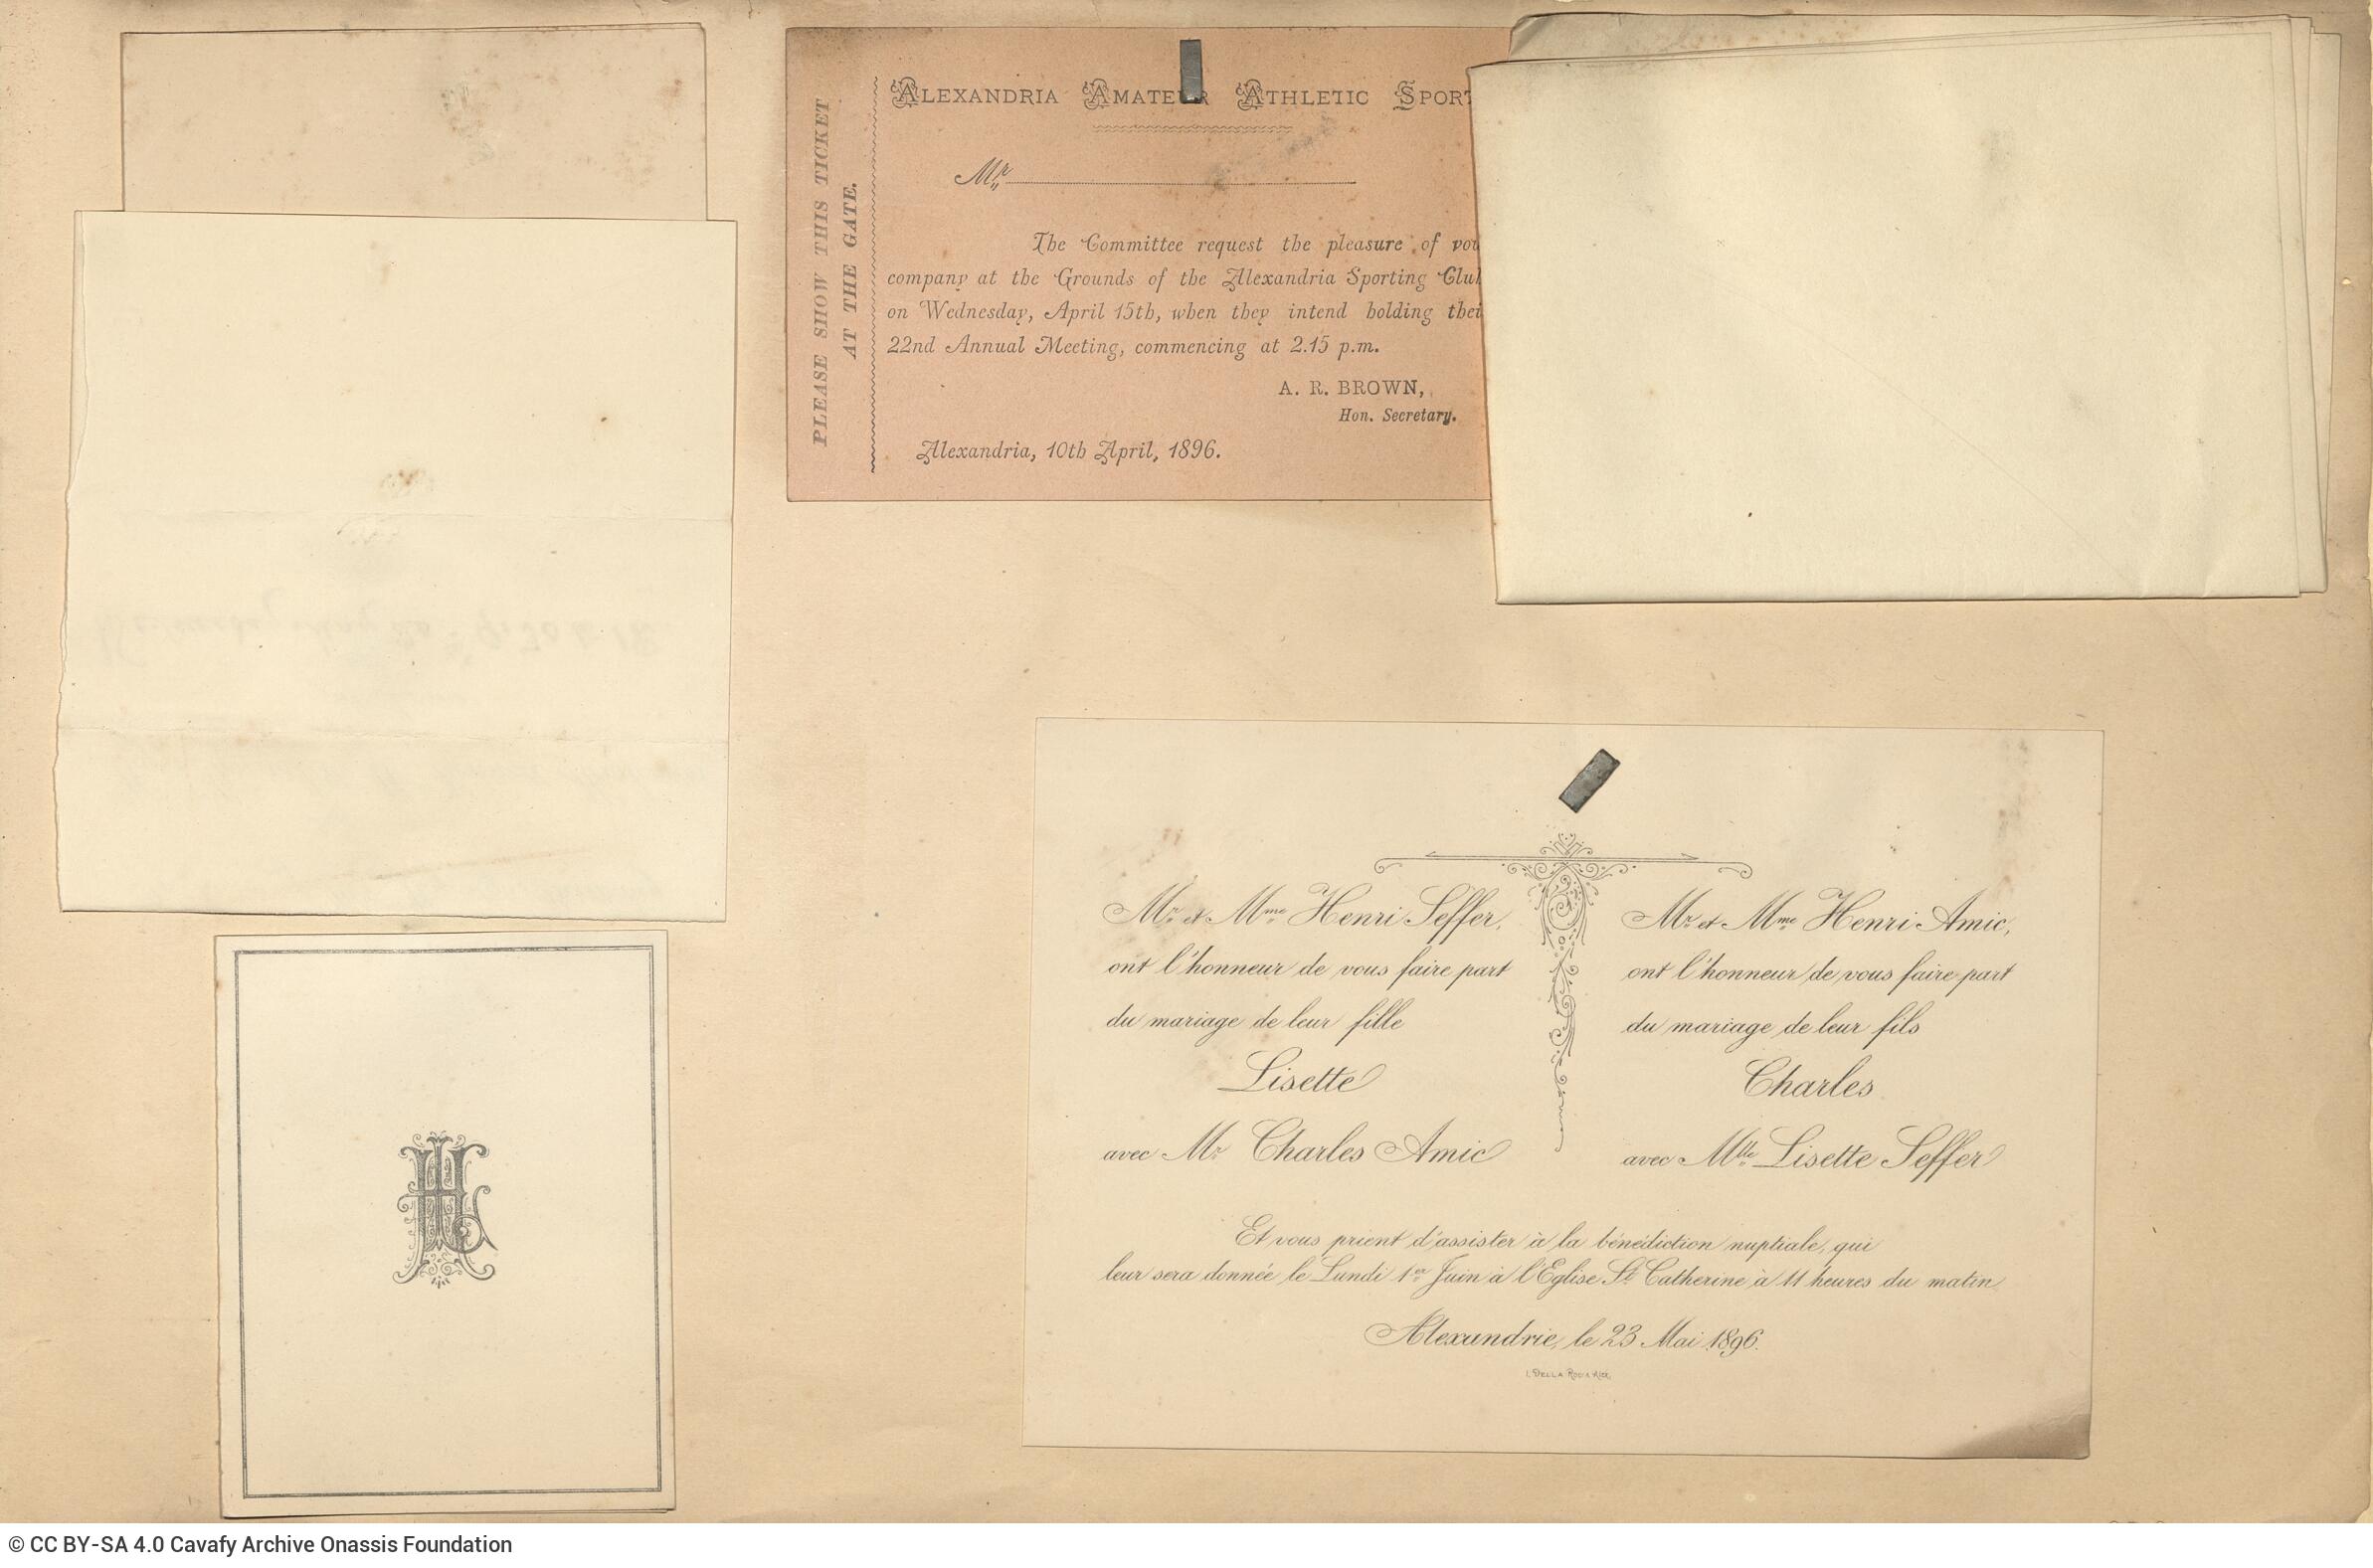 PLEASE SHOW THIS TICKET
AT THE GATE.
ALEXANDRIA AMATEUR ATHLETIC SPORT
Mr.
The Committee request the pleasure of you
company at the Grounds of the Alexandria Sporting Club
on Wednesday, April 15th, when they intend holding thei
22nd Annual Meeting, commencing at 2.15 p.m.
A. R. BROWN,
Hon. Secretary.
Alexandria, 10th April, 1896.
Mr. et Mme Henri Seffer,
ont l'honneur de vous faire part
du mariage de leur fille
Lisette
avec Mr. Charles Amic
Mr. et Mme Henri Amic,
ont l'honneur de vous faire part
du mariage de leur fils
Charles
avec Mlle Lisette Seffer
Et vous prient d'assister à la bénédiction nuptiale, qui
leur sera donnée le Lundi 1er Juin à l'Eglise St Catherine à 11 heures du matin
Alexandrie, le 23 Mai 1896.
© CC BY-SA 4.0 Cavafy Archive Onassis Foundation